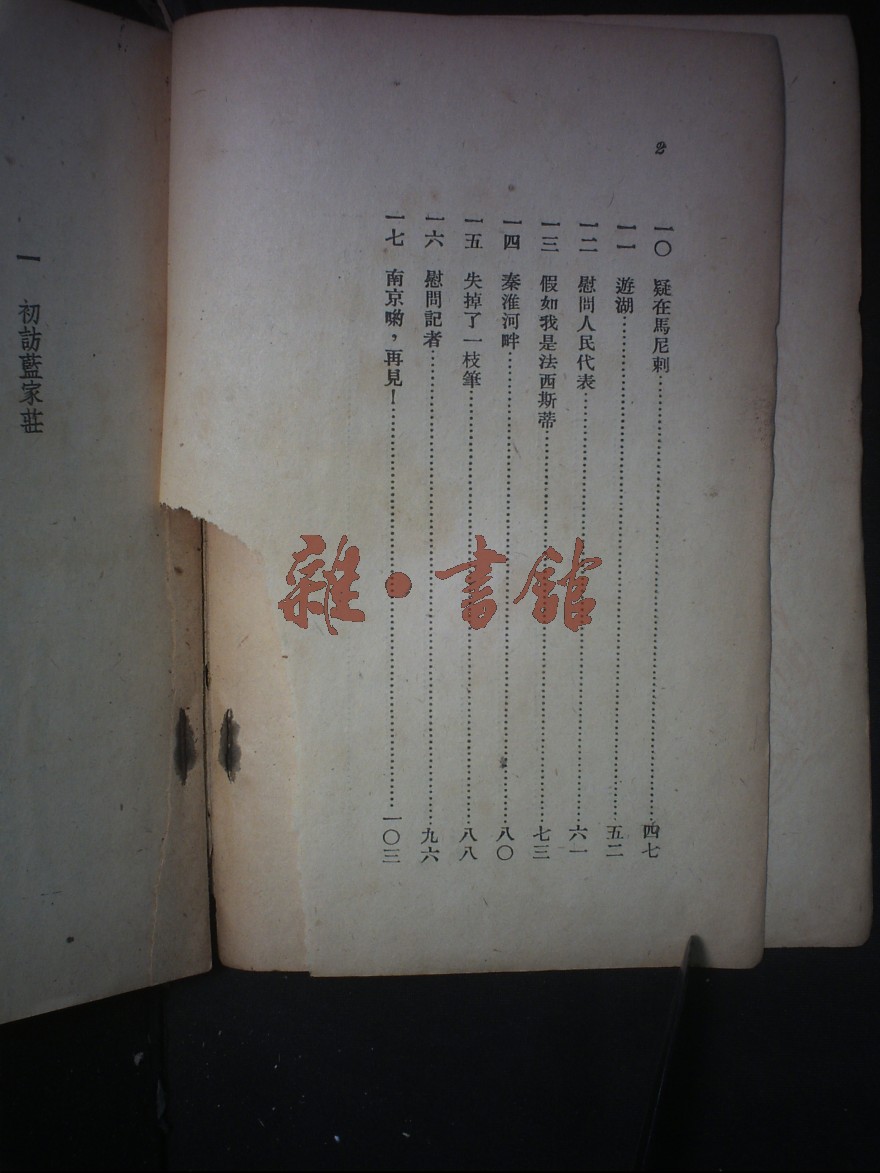 2
一〇 疑在馬尼剌……四七
一一 遊湖……五二
一二 慰問人民代表……六一
一三 假如我是法西斯蒂……七三
一四 秦淮河畔……八〇
一五 失掉了一枝筆……八八
一六 慰問記者……九六
一七 南京喲，再見！……一〇三
一 初訪藍家莊
雜·書館